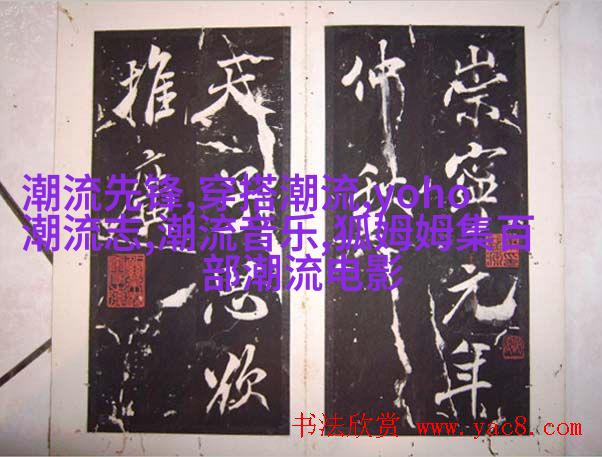 崇寧元年
仲秋
潮流先锋,穿搭潮流,yoho
潮流志,潮流音乐,狐姆姆集百
部潮流电影
书法欣赏 www.yac8.com